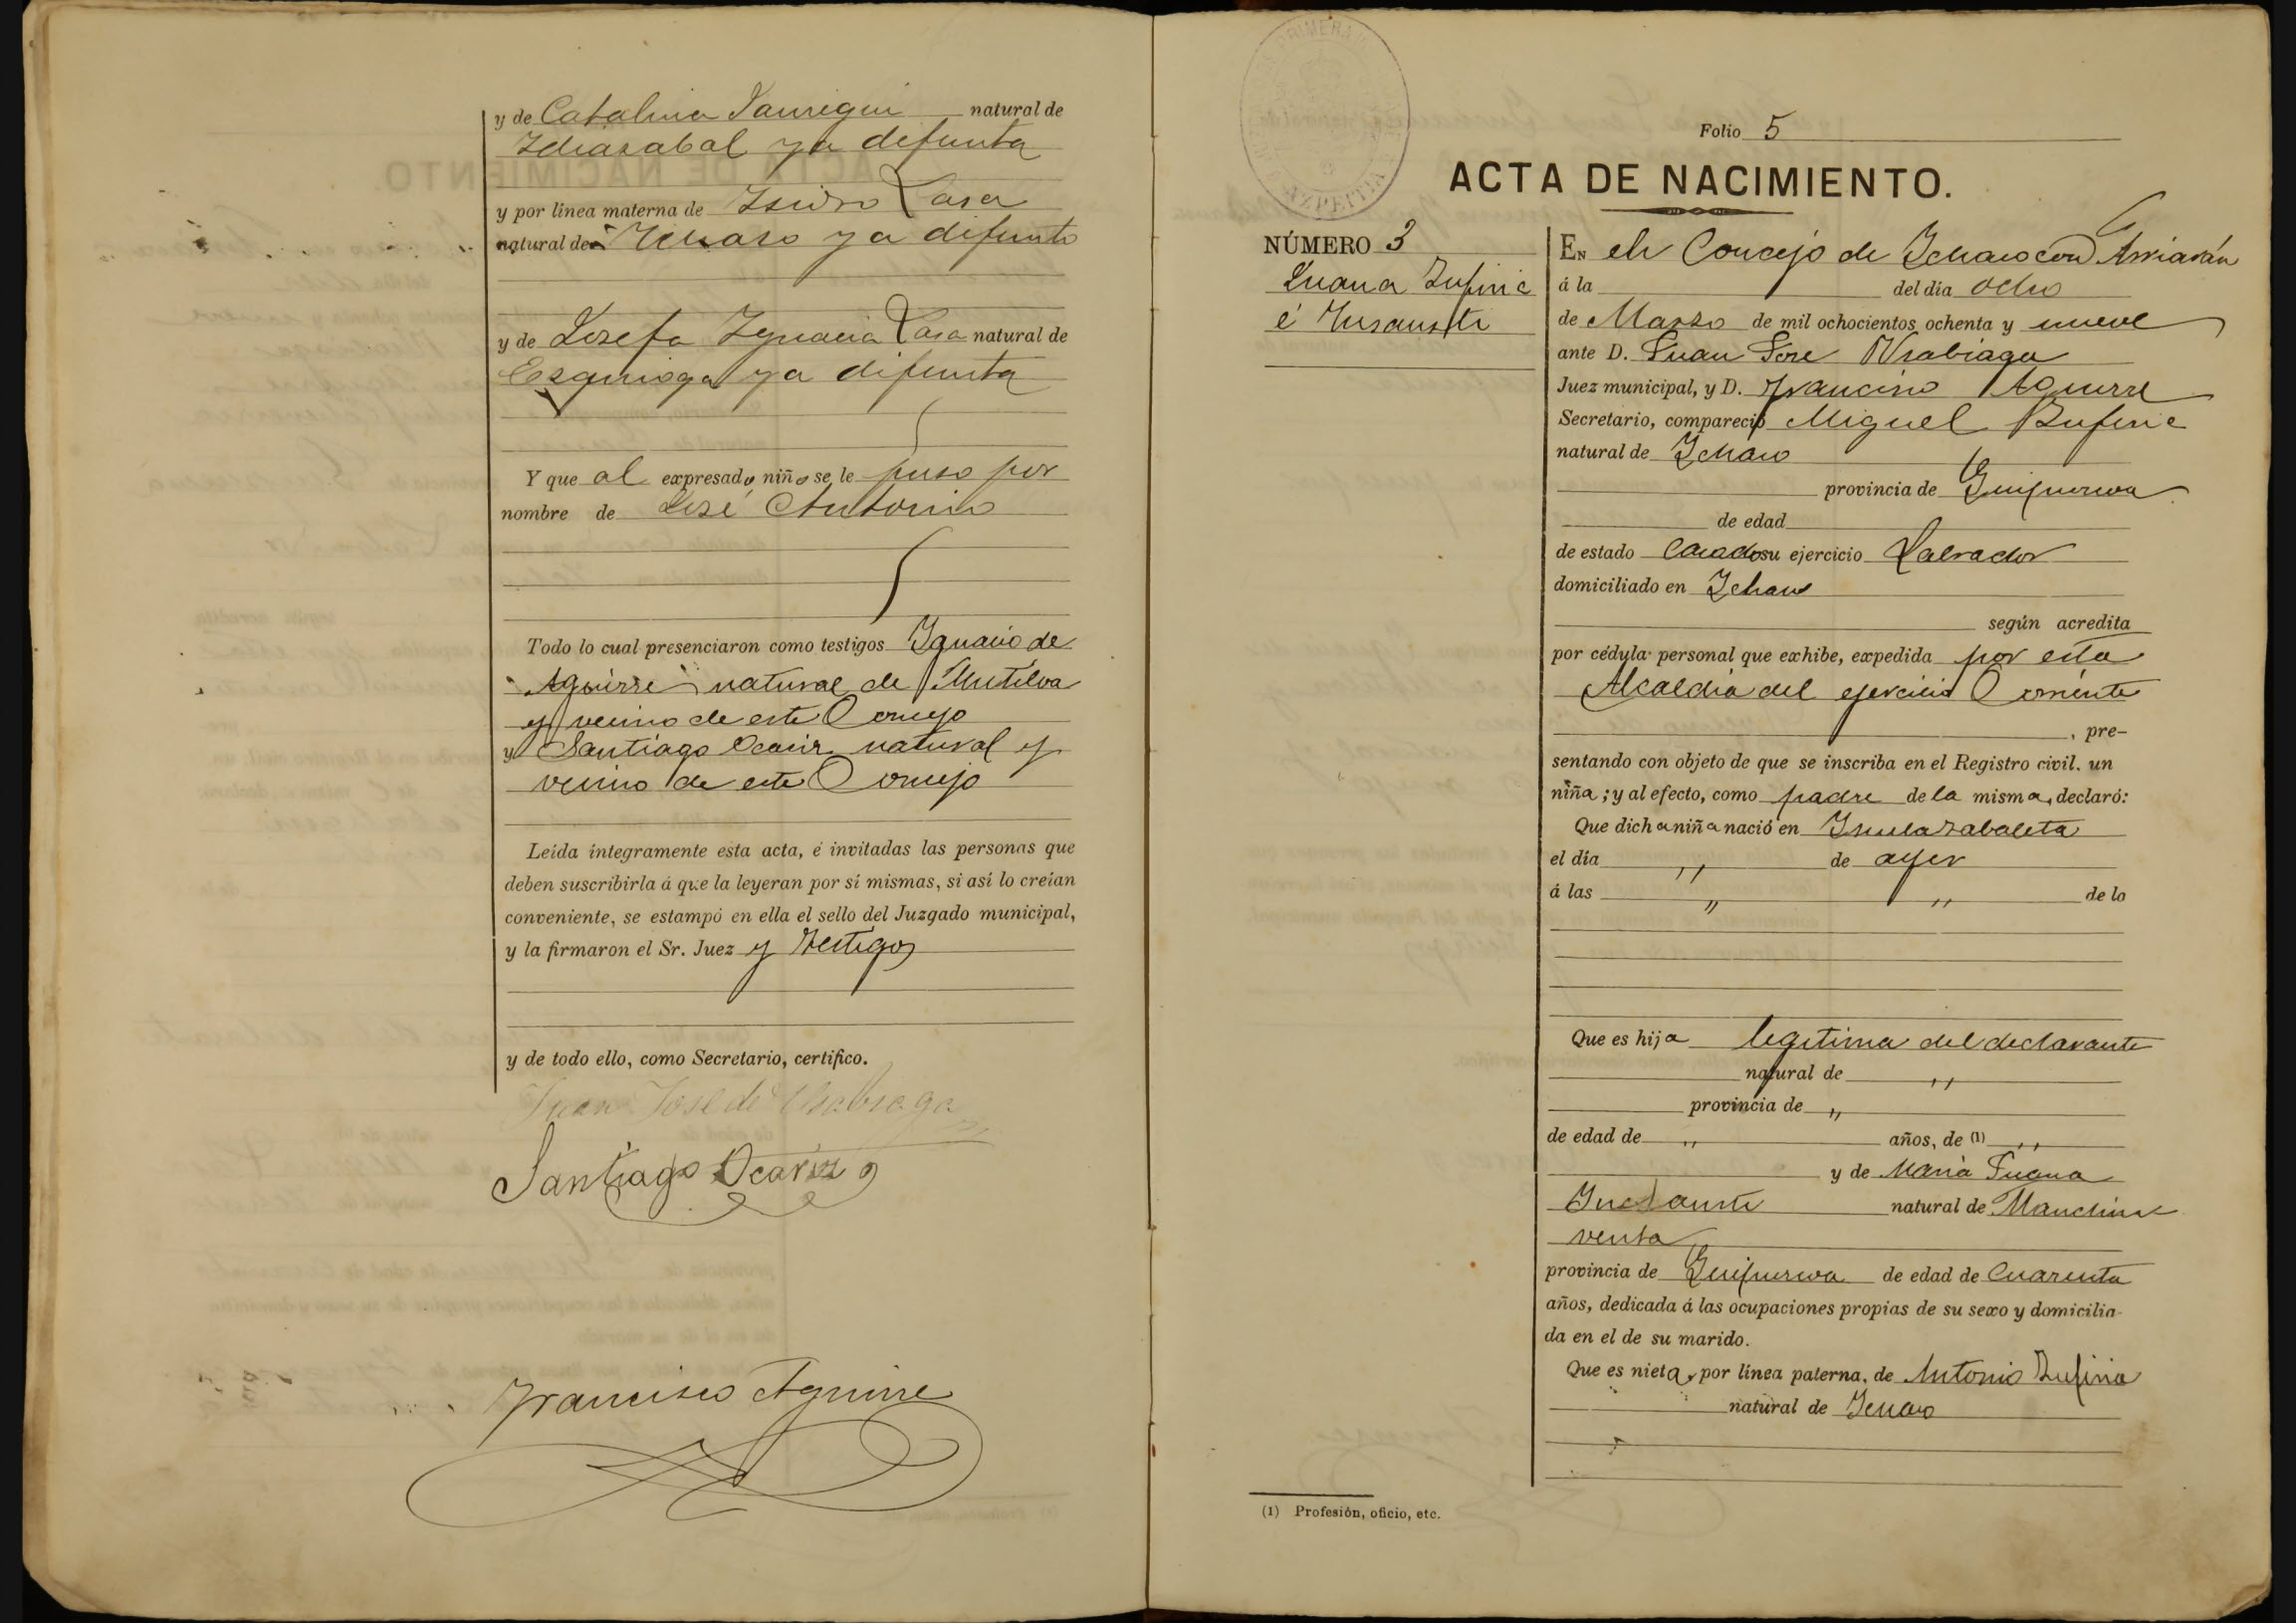 y de Catalina Jauregui natural de
Idiazabal ya defunta
y por línea materna de Isidro Lasa
natural de Ichaso ya difunto
y de Josefa Ignacia Lasa natural de
Esquioga ya difunta
Y que al expresado niño se le puso por
nombre de José Antonio
Todo lo cual presenciaron como testigos Ignacio de
Aguirre natural de Mutiloa
y vecino de este Concejo
y Santiago Ocariz natural y
vecino de este Concejo
Leída íntegramente esta acta, é invitadas las personas que
deben suscribirla á que la leyeran por sí mismas, si así lo creían
conveniente, se estampó en ella el sello del Juzgado municipal,
y la firmaron el Sr. Juez y Testigos
y de todo ello, como Secretario, certifico.
Juan José de Usabiaga
Santiago Ocariz
Francisco Aguirre
AZPEITIA
Folio 5
ACTA DE NACIMIENTO.
NÚMERO 3
Juana Zufiria
é Insausti
EN el Concejo de Ichaso con Arriarán
á la del día ocho
de Marzo de mil ochocientos ochenta y nueve
ante D. Juan José Usabiaga
Juez municipal, y D. Francisco Aguirre
Secretario, compareció Miguel Zufiria
natural de Ichaso
provincia de Guipuzcoa
de edad
de estado Casado su ejercicio Labrador
domiciliado en Ichaso
según acredita
por cédula personal que exhibe, expedida por esta
Alcaldía del ejercicio Corriente
, pre-
sentando con objeto de que se inscriba en el Registro civil. un
niña; y al efecto, como padre de la misma, declaró:
Que dicha niña nació en
el día ,, de ayer
á las ,, ,, de la
Que es hija legitima del declarante
natural de ,,
provincia de ,,
de edad de ,, años, de (1) ,,
y de Maria Juana
Insausti natural de Manchin
venta
provincia de Guipuzcoa de edad de Cuarenta
años, dedicada á las ocupaciones propias de su sexo y domicilia-
da en el de su marido.
Que es nieta, por línea paterna, de Antonio Zufiria
natural de Ichaso
(1) Profesión, oficio, etc.